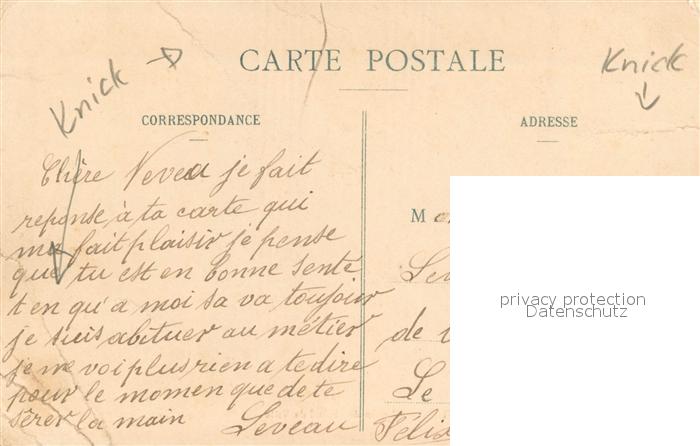 Knick
CARTE POSTALE
Knick
CORRESPONDANCE
Chère Neveu je fait
reponse à ta carte qui
me fait plaisir je pense
que tu est en bonne senté
t en qu'a moi sa va toujour
je suis abituer au métier
je ne voi plus rien a te dire
pour le momen que de te
sêrer la main
Leveau
ADRESSE
M
de
Le
Felix
privacy protection
Datenschutz